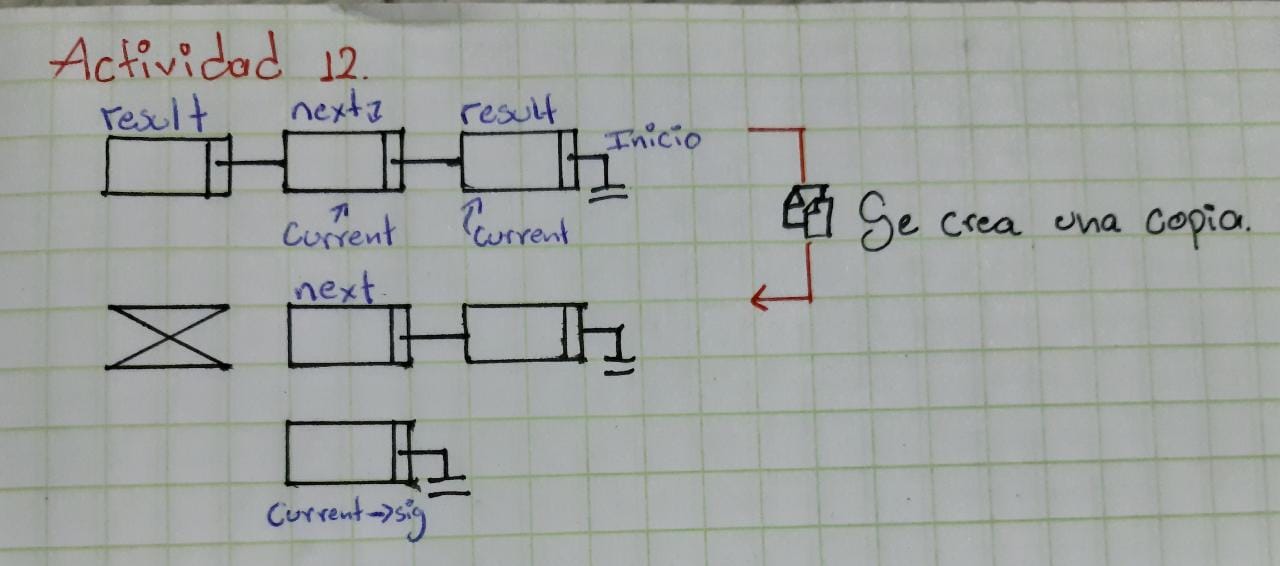 Actividad 12.
result next1 result
Inicio
Current Current
Se crea una copia.
next
Current→sig